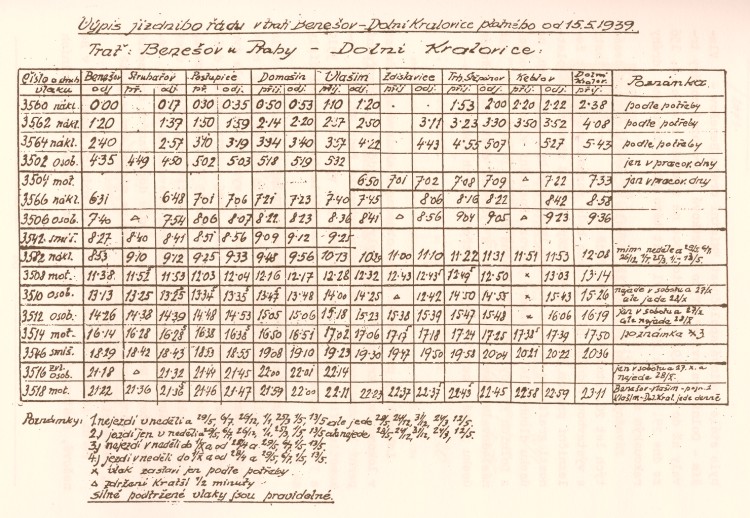 Výpis jízdního řádu v trati Benešov–Dolní Kralovice platného od 15.5.1939.
Trať: Benešov u Prahy – Dolní Kralovice:
Číslo a druh vlaku Benešov odj. Struhařov příj. odj. Postupice příj. odj. Domašín příj. odj. Vlašim příj. odj. Zdislavice příj. odj. Trh. Štěpánov příj. odj. Keblov příj. odj. Dolní Kralov. příj. Poznámka
3560 nákl. 0·00 0·17 0·30 0·35 0·50 0·53 1·10 1·20 1·53 2·00 2·20 2·22 2·38 podle potřeby
3562 nákl. 1·20 1·37 1·50 1·59 2·14 2·20 2·37 2·50 3·11 3·23 3·30 3·50 3·52 4·08 podle potřeby
3564 nákl. 2·40 2·57 3·10 3·19 3·34 3·40 3·57 4·22 4·43 4·55 5·07 5·27 5·43 podle potřeby
3502 osob. 4·35 4·49 4·50 5·02 5·03 5·18 5·19 5·32 jen v pracov. dny
3504 mot. 6·50 7·01 7·02 7·08 7·09 △ 7·22 7·33 jen v pracov. dny
3566 nákl. 6·31 6·48 7·01 7·06 7·21 7·23 7·40 7·45 8·06 8·16 8·22 8·42 8·58
3506 osob. 7·40 △ 7·54 8·06 8·07 8·22 8·23 8·36 8·41 △ 8·56 9·04 9·05 △ 9·23 9·36
3542 smíš. 8·27 8·40 8·41 8·51 8·56 9·09 9·12 9·25
3582 nákl. 8·53 9·10 9·12 9·25 9·33 9·48 9·56 10·13 10·39 11·00 11·10 11·22 11·31 11·51 11·53 12·08 mimo neděle a
3508 mot. 11·38 11·52⁵ 11·53 12·03 12·04 12·16 12·17 12·28 12·32 12·43 12·43⁵ 12·49⁵ 12·50 × 13·03 13·14
3510 osob. 13·13 13·25 13·25⁵ 13·34⁵ 13·35⁵ 13·47⁵ 13·48 14·00 14·25 △ 14·42 14·50 14·55 × 15·43 15·26 nejede v sobotu a 27/X ale jede 28/X
3512 osob. 14·26 14·38 14·39 14·48 14·53 15·05 15·06 15·18 15·23 15·38 15·39 15·47 15·48 × 16·06 16·19 jede v sobotu a 27/X ale nejede 28/X
3514 mot. 16·14 16·28 16·28⁵ 16·38 16·38⁵ 16·50 16·51 17·02 17·06 17·17⁵ 17·18 17·24 17·25 17·38⁵ 17·39 17·50 poznámka ×3
3546 smíš. 18·29 18·42 18·43 18·53 18·55 19·08 19·10 19·23 19·30 19·47 19·50 19·58 20·04 20·21 20·22 20·36
3516 zvl. osob. 21·18 △ 21·32 21·44 21·45 22·00 22·01 22·14 jen v sobotu a 27.X. a nejede 28/X.
3518 mot. 21·22 21·36 21·36⁵ 21·46 21·47 21·59 22·00 22·11 22·23 22·37 22·37⁵ 22·43⁵ 22·45 22·58 22·59 23·11 Benešov–Vlašim – Vlašim–Dol. Kral. jede denně
Poznámky: 1, nejezdí v neděli a 29/5, 6/7, 26/12, 1/1, 25/3, 1/5, 13/5 ale jede
2) jezdí jen v neděli a 29/5, 6/7, 26/12, 1/1, 25/3, 1/5, 13/5
3) nejezdí v neděli do 1/X a od
4) jezdí v neděli do 1/X a od
× vlak zastaví jen podle potřeby
△ zdržení kratší ½ minuty
silně podtržené vlaky jsou pravidelné.